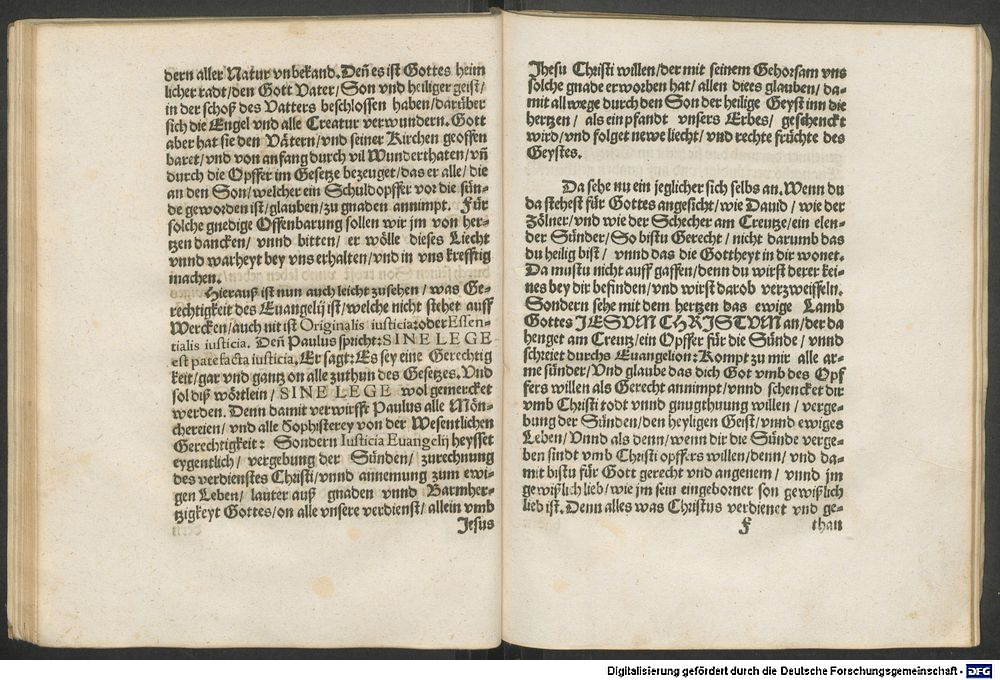 dern aller Natur vnbekand. Deñ es ist Gottes heim
licher radt/den Gott Vater/Son vnd heiliger geist/
in der schoß des Vatters beschlossen haben/darüber
sich die Engel vnd alle Creatur verwundern. Gott
aber hat sie den Vätern/vnd seiner Kirchen geoffen
baret/vnd von anfang durch vil Wunderthaten/vñ
durch die Opffer im Gesetze bezeuget/das er alle/die
an den Son/welcher ein Schuldopffer vor die sün-
de geworden ist/glauben/zu gnaden annimpt. Für
solche gnedige Offenbarung sollen wir jm von her-
tzen dancken/ vnnd bitten/ er wölle dieses Liecht
vnnd warheyt bey vns erhalten/vnd in vns krefftig
machen.
Hierauß ist nun auch leicht zusehen/ was Ge-
rechtigkeit des Euangelij ist/welche nicht stehet auff
Wercken/auch nit ist Originalis iusticia: oder Essen-
tialis iusticia. Deñ Paulus spricht: SINE LEGE
est patefacta iusticia. Er sagt: Es sey eine Gerechtig
keit/gar vnd gantz on alle zuthun des Gesetzes. Vnd
sol diß wörtlein/ SINE LEGE wol gemercket
werden. Denn damit verwirfft Paulus alle Mön-
chereien/ vnd alle Sophisterey von der Wesentlichen
Gerechtigkeit: Sondern Iusticia Euangelij heysset
eygentlich/ vergebung der Sünden/ zurechnung
des verdienstes Christi/vnnd annemung zum ewi-
gen Leben/ lauter auß gnaden vnnd Barmher-
tzigkeyt Gottes/on alle vnsere verdienst/ allein vmb
Jesus
Jhesu Christi willen/der mit seinem Gehorsam vns
solche gnade erworben hat/ allen diees glauben/ da-
mit all wege durch den Son der heilige Geyst inn die
hertzen/ als ein pfandt vnsers Erbes/ geschenckt
wird/vnd folget newe liecht/ vnd rechte früchte des
Geystes.
Da sehe nu ein jeglicher sich selbs an. Wenn du
da stehest für Gottes angesicht/wie Dauid / wie der
Zölner/vnd wie der Schecher am Creutze/ein elen-
der Sünder/So bistu Gerecht/ nicht darumb das
du heilig bist/ vnnd das die Gottheyt in dir wonet.
Da mustu nicht auff gaffen/denn du wirst derer kei-
nes bey dir befinden/vnd wirst darob verzweiffeln.
Sondern sehe mit dem hertzen das ewige Lamb
Gottes JESVM CHRISTVM an/der da
henget am Creutz/ein Opffer für die Sünde/ vnnd
schreiet durchs Euangelion: Kompt zu mir alle ar-
me sünder/Vnd glaube das dich Got vmb des Opf
fers willen als Gerecht annimpt/vnnd schencket dir
vmb Christi todt vnnd gnugthuung willen/ verge-
bung der Sünden/den heyligen Geist/ vnnd ewiges
Leben/Vnnd als denn/wenn dir die Sünde verge-
ben sindt vmb Christi opffers willen/denn/ vnd da-
mit bistu für Gott gerecht vnd angenem/ vnnd jm
gewißlich lieb/wie jm sein eingeborner son gewißlich
lieb ist. Denn alles was Christus verdienet vnd ge-
F than
Digitalisierung gefördert durch die Deutsche Forschungsgemeinschaft - DFG